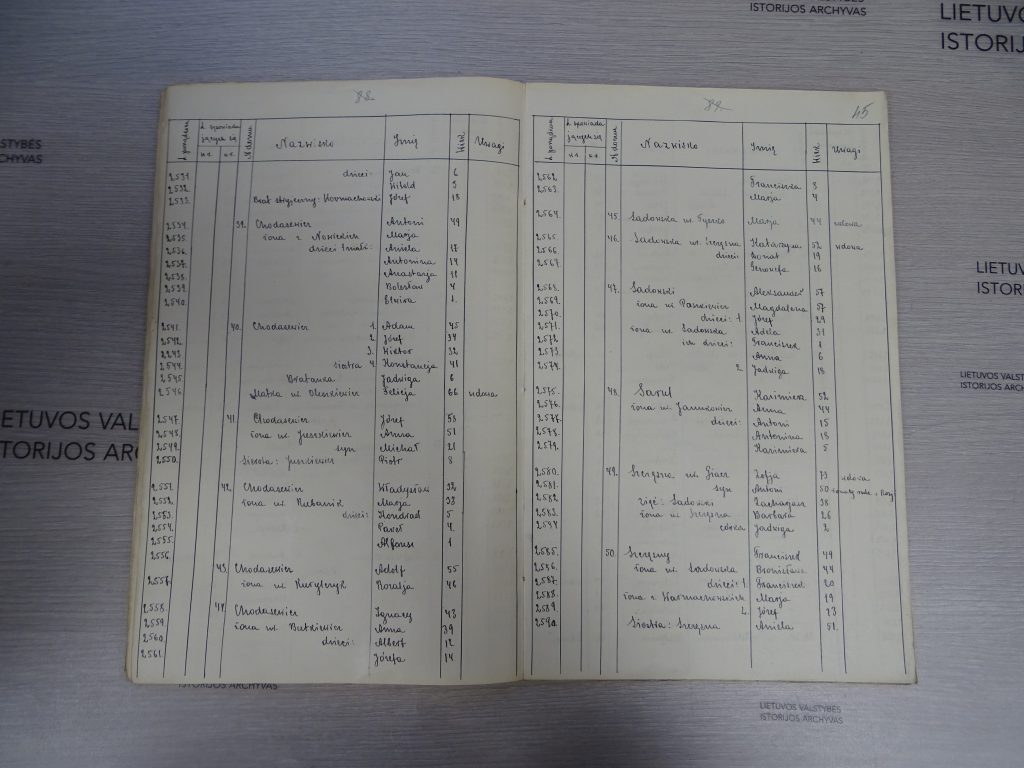 LIETUVOS VALSTYBĖS
ISTORIJOS ARCHYVAS
88
L. porządkowa
Nr domu
Nazwisko
Imię
Wiek
Uwagi
2531. dzieci: Jan 6
2532. Witold 3
2533. Brat stryjeczny: Józef 18
2534. 39. Chodasewicz Antoni 49
2535. żona z Nowickich Marja
2536. dzieci Aniela 17
2537. Antonina 14
2538. Anastazja 11
2539. Bolesław 4
2540. 1.
2541. 40. Chodasewicz 1. Adam 45
2542. 2. Józef 34
2543. 3. Wiktor 32
2544. siostra 4. Konstancja 41
2545. Bratanka Jadwiga 6
2546. Matka ur. Felicja 66 wdowa
2547. 41. Chodasewicz Józef 53
2548. żona ur. Anna 51
2549. syn Michał 21
2550. Sierota: Juszkiewicz Piotr 8
2551. 42. Chodasewicz Władysław 32
2552. żona ur. Marja 33
2553. dzieci: Kondrad 5
2554. Paweł 4.
2555. Alfonse 1
2556. 43. Chodasewicz Adolf 55
2557. żona ur. Rozalja 46
2558. 44. Chodasewicz Ignacy 43
2559 żona ur. Butkiewicz Anna 39
2560. dzieci: Albert 12
2561. Józefa 14
89
45
Nr domu
Nazwisko
Imię
Wiek
Uwagi
2562. Franciszka 8
2563. Marja 4
2564. 45. Sadowska ur. Marja 44 wdowa
2565. 46. Sadowska ur. Szczęsna Katarzyna 52 wdowa
2566. dzieci: Donat 19
2567. Genowefa 16
2568. 47. Sadowski Aleksander 57
2569. żona ur. Paszkiewicz Magdalena 57
2570. dzieci: 1. Józef 29
2571. żona ur. Sadowska Adela 31
2572. ich dzieci: Franciszek 1
2573. Anna 6
2574. 2. Jadwiga 18
2575. 48. Kazimierz 52
2576. żona ur. Janukowicz Anna 44
2577. dzieci: Antoni 15
2578. Antonina 18
2579. Kazimiera 5
2580. 49. Szczęsna ur. Zofja 73 wdowa
2581. syn Antoni 50
2582. zięć: Sadowski Zacharjasz 38
2583. żona ur. Szczęsna Barbara 26
2584 córka Jadwiga 2
2585. 50. Szczęsny Franciszek 49
2586. żona ur. Sadowska Bronisława 44
2587. dzieci: 1. Franciszek 20
2588. żona z Marja 19
2589. 2. Józef 23
2590. Siostra: Szczęsna Aniela 51.
LIETUVOS VALSTYBĖS
ISTORIJOS ARCHYVAS